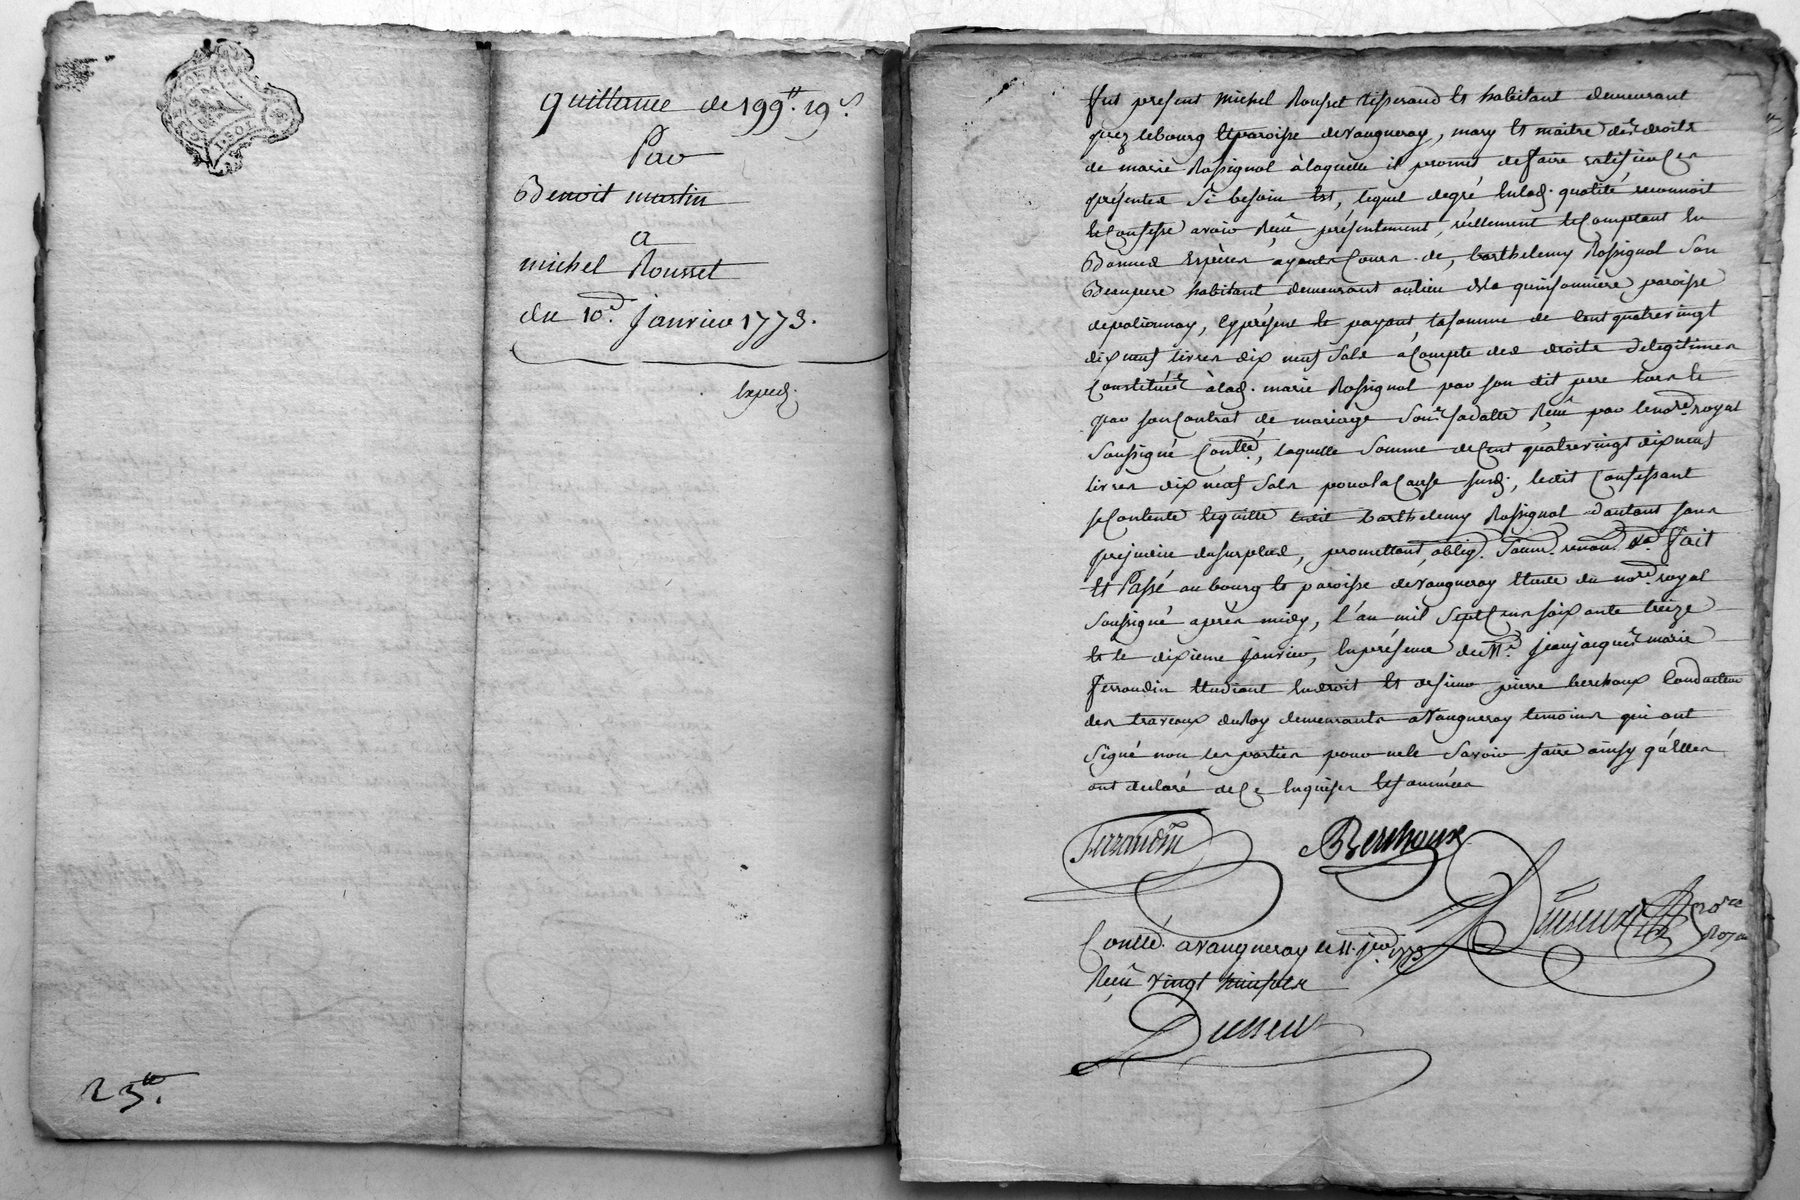 quittance de 199ᵗᵗ 19ˢ
Par
Benoit martin
a
michel Rousset
du 10ᵉ. Janvier 1773.
exped.
R 3ᵗᵗ.
Fut present michel Rousset tisserand et habitant demeurant
au bourg et paroisse de vaugneray, mary et maitre des droits
de marie Rossignol à laquelle il promet de faire ratifier ces
présentes si besoin est, lequel de gré en lad. qualité, reconnoit
et confesse avoir reçu présentement, réellement et comptant en
Bonnes Espèces ayants cours de, barthelemy Rossignol son
Beaupere habitant demeurant au lieu de la quinsonniere paroisse
de polionnay, cy présent et payant, la somme de cent quatre vingt
dix neuf livres dix neuf sols a compte des droits de legitimes
constitués à lad. marie Rossignol par son dit pere dans le
par son contrat de mariage sous sa datte Reçu par le noʳᵉ royal
soussigné Contllé, laquelle somme de Cent quatre vingt dix neuf
livres dix neuf sols pour la cause susd., ledit Confessant
se Contente et quitte ledit barthelemy Rossignol d'autant sans
prejudice du surplus, promettant, oblig. soum. renon. &ª. fait
et Passé au bourg et paroisse de vaugneray Etude du noʳᵉ royal
soussigné après midy, l'an mil sept Cent soixante treize
et le dixieme Janvier, En présence de Mʳ. Jean jacques marie
ferrandin Etudiant en droit et de sieur pierre berchoux Conducteur
des travaux du Roy demeurants a vaugneray temoins qui ont
signé non les parties pour ne le savoir faire ainsy qu'elles
ont declaré de ce Enquises et sommées
Ferrandin
Berchoux
Contllé. a vaugneray le 11. Jer. 1773
noʳᵉ
Royal
Reçu vingt huit sols